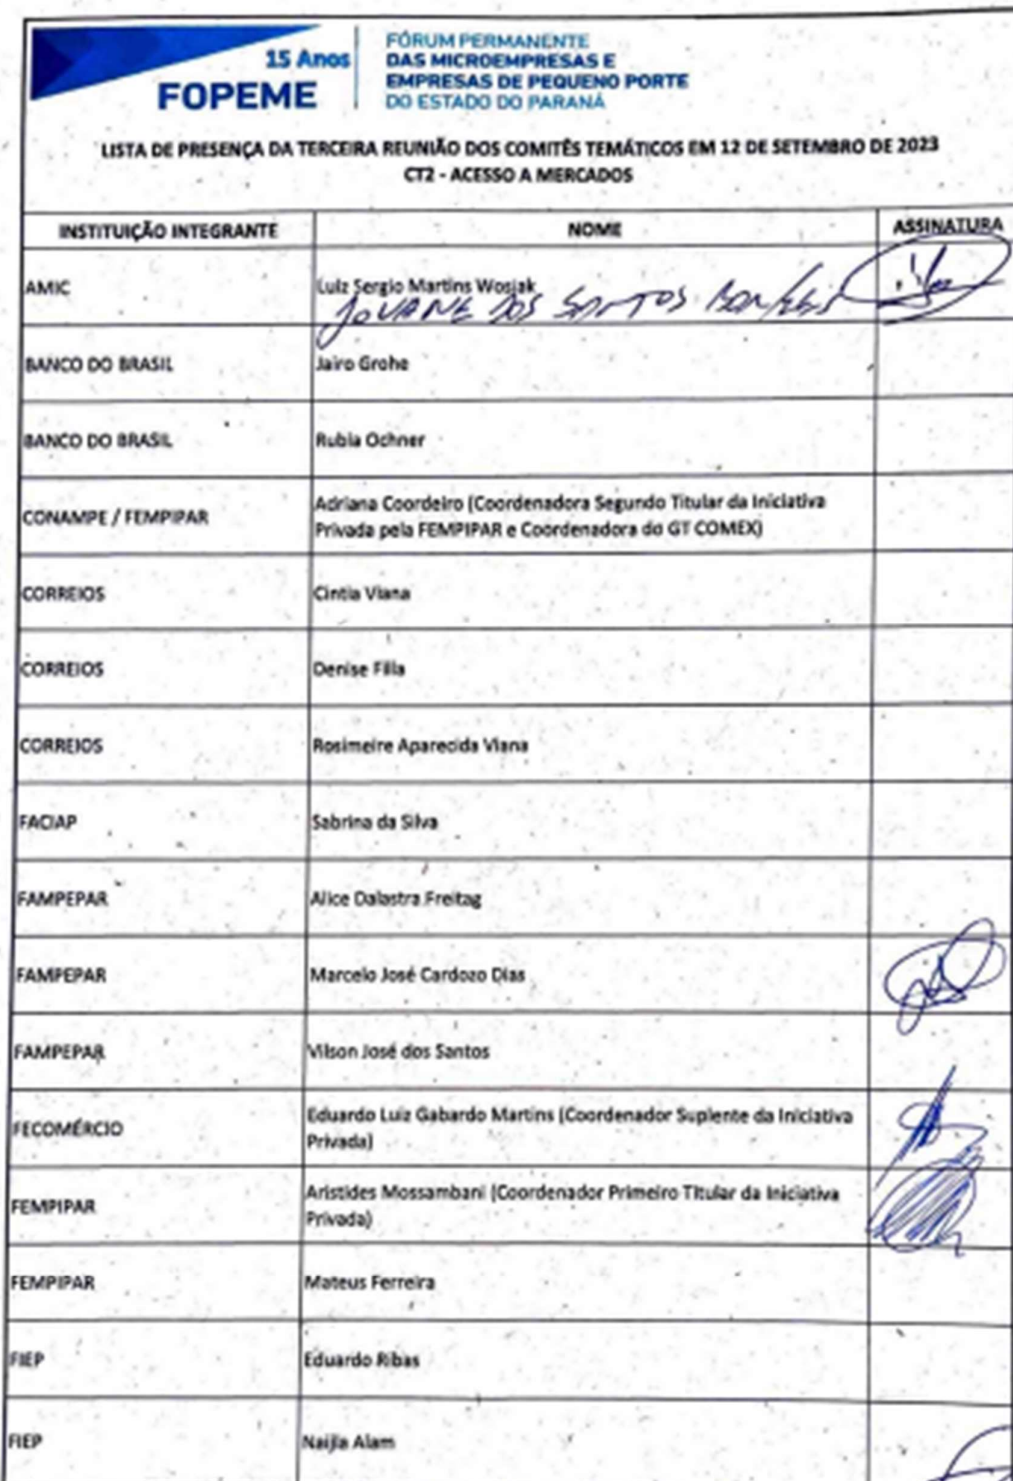 15 Anos
FOPEME
FÓRUM PERMANENTE
DAS MICROEMPRESAS E
EMPRESAS DE PEQUENO PORTE
DO ESTADO DO PARANÁ
LISTA DE PRESENÇA DA TERCEIRA REUNIÃO DOS COMITÊS TEMÁTICOS EM 12 DE SETEMBRO DE 2023
CT2 - ACESSO A MERCADOS
INSTITUIÇÃO INTEGRANTE NOME ASSINATURA
AMIC Luiz Sergio Martins Wosjak
DOS SANTOS
BANCO DO BRASIL Jairo Grohe
BANCO DO BRASIL Rubia Ochner
CONAMPE / FEMPIPAR Adriana Coordeiro (Coordenadora Segundo Titular da Iniciativa
Privada pela FEMPIPAR e Coordenadora do GT COMEX)
CORREIOS Cintia Viana
CORREIOS Denise Filla
CORREIOS Rosimeire Aparecida Viana
FACIAP Sabrina da Silva
FAMPEPAR Alice Dalastra Freitag
FAMPEPAR Marcelo José Cardozo Dias
FAMPEPAR Vilson José dos Santos
FECOMÉRCIO Eduardo Luiz Gabardo Martins (Coordenador Suplente da Iniciativa
Privada)
FEMPIPAR Aristides Mossambani (Coordenador Primeiro Titular da Iniciativa
Privada)
FEMPIPAR Mateus Ferreira
FIEP Eduardo Ribas
FIEP Naijla Alam